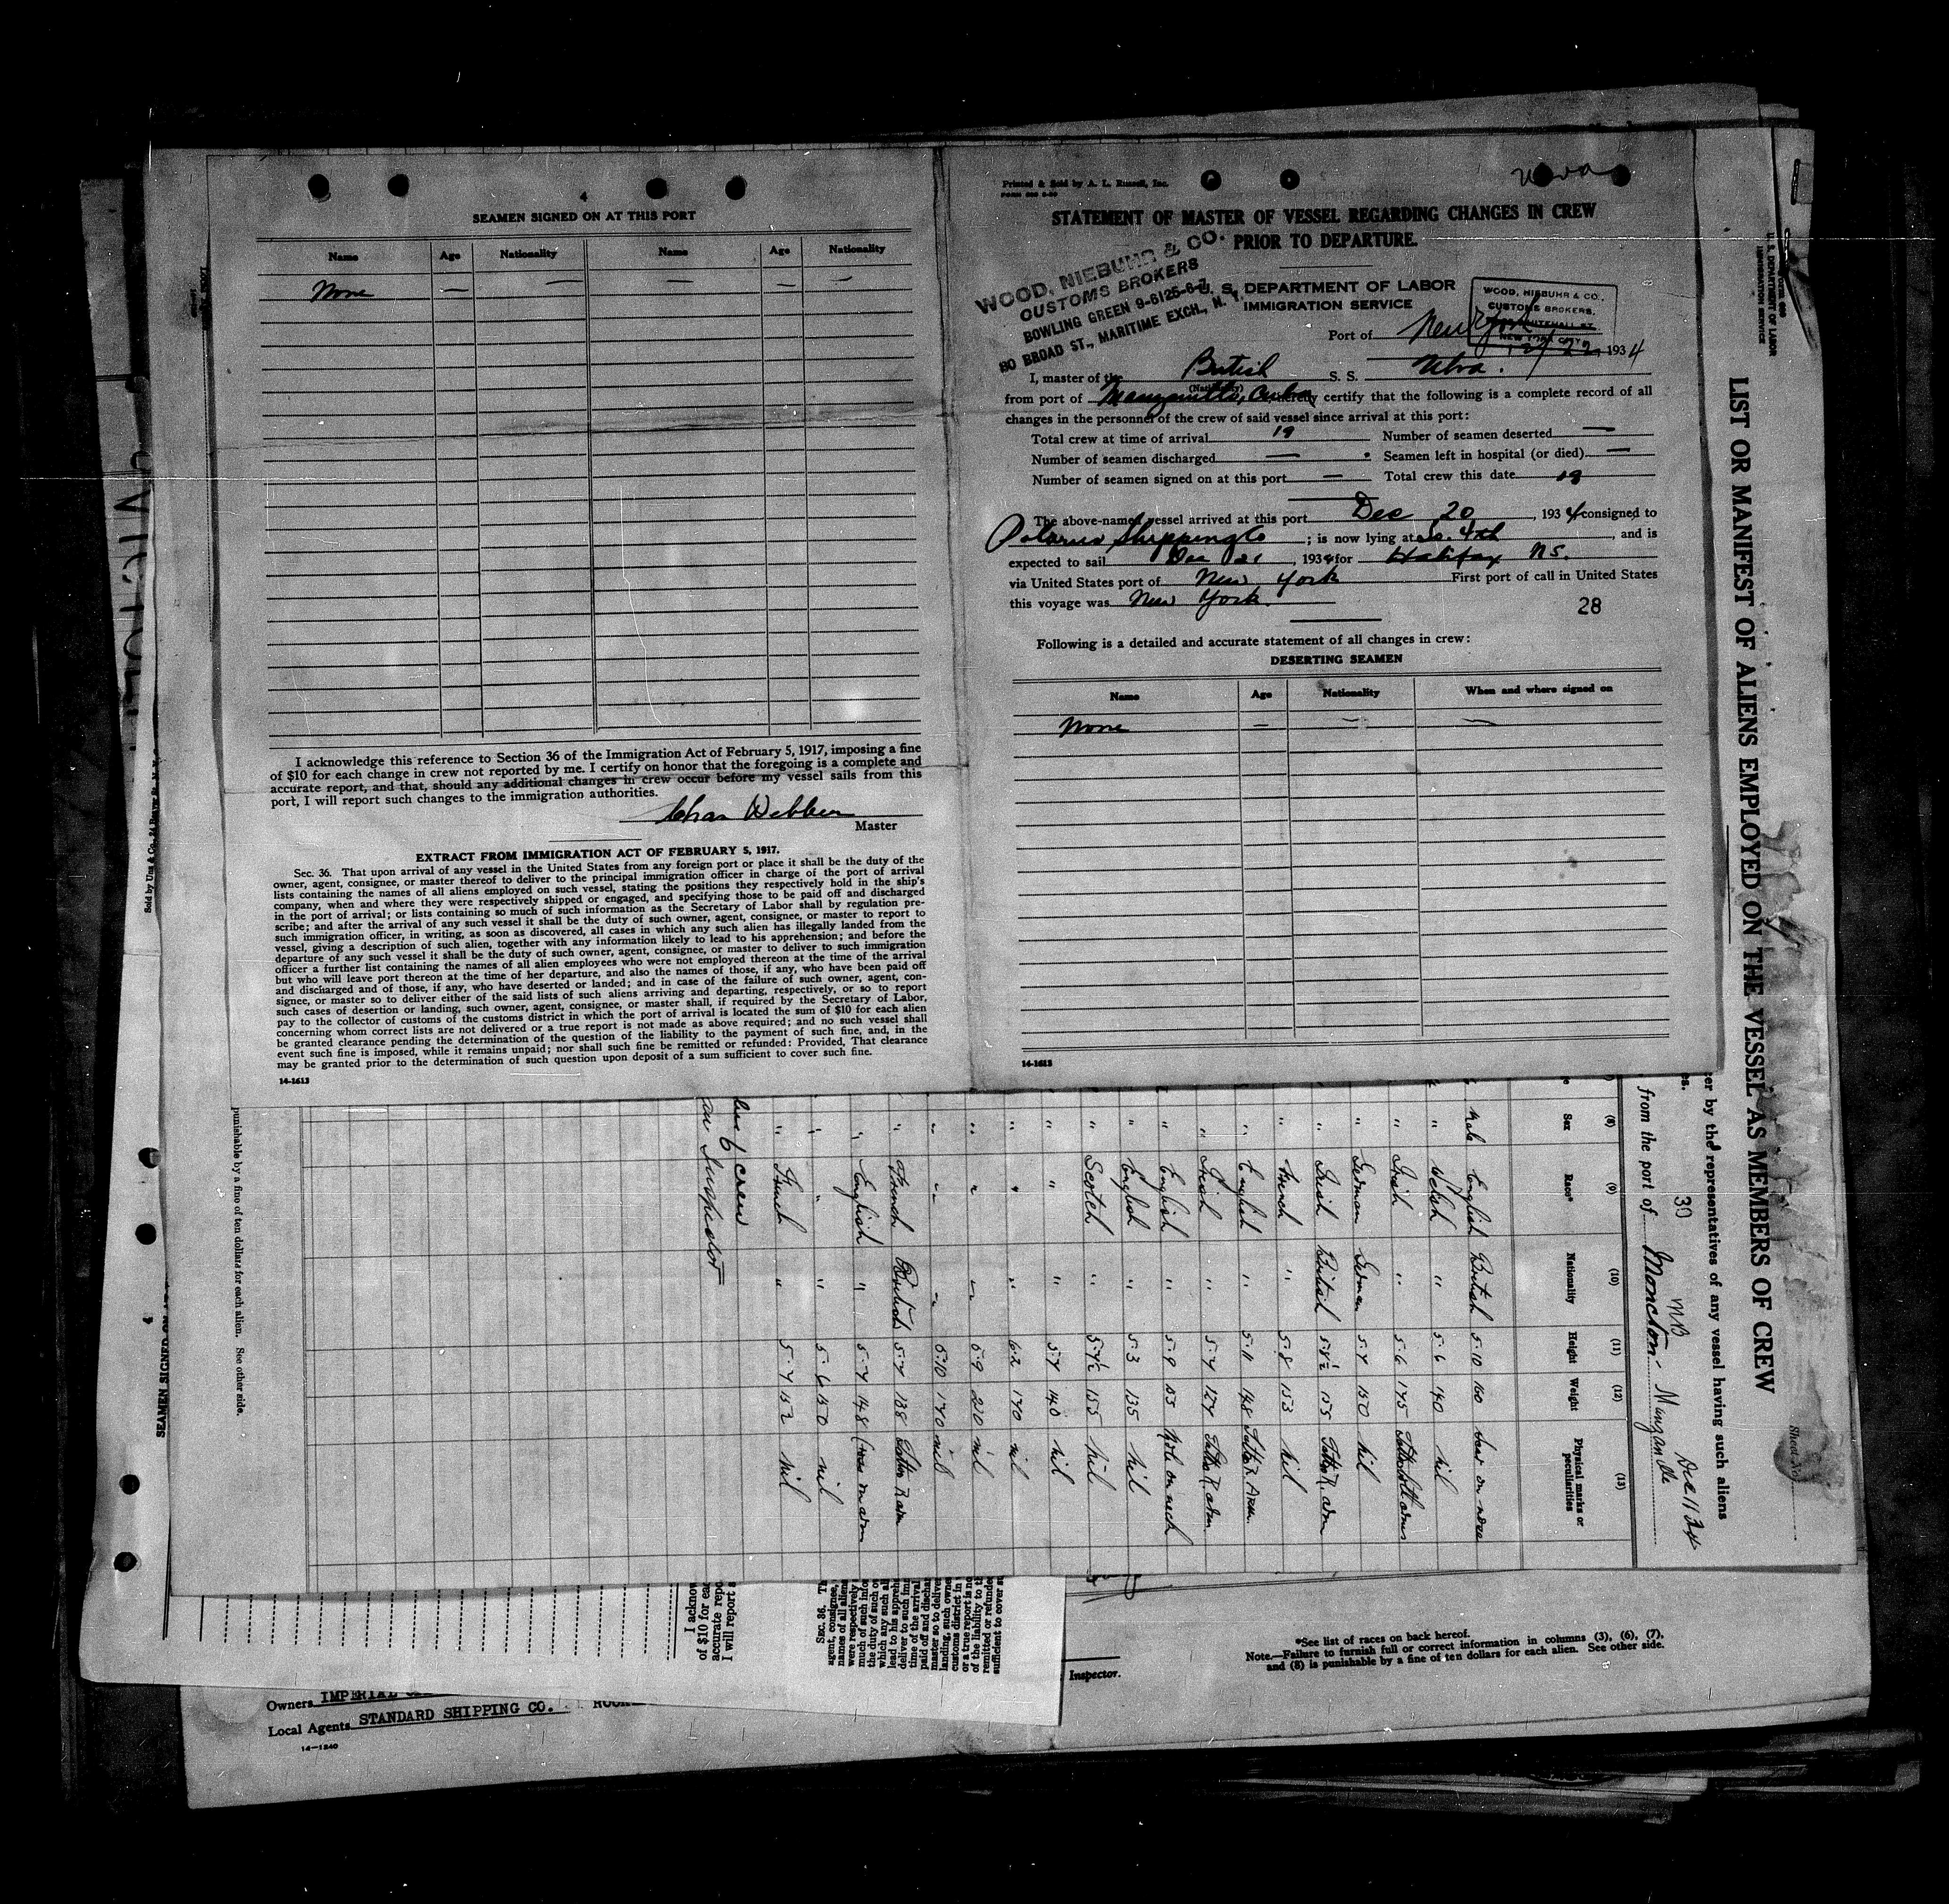 4
SEAMEN SIGNED ON AT THIS PORT
Name Age Nationality Name Age Nationality
None — — — — —
I acknowledge this reference to Section 36 of the Immigration Act of February 5, 1917, imposing a fine
of $10 for each change in crew not reported by me. I certify on honor that the foregoing is a complete and
accurate report, and that, should any additional changes in crew occur before my vessel sails from this
port, I will report such changes to the immigration authorities.
Chas Webber
Master
EXTRACT FROM IMMIGRATION ACT OF FEBRUARY 5, 1917.
Sec. 36. That upon arrival of any vessel in the United States from any foreign port or place it shall be the duty of the
owner, agent, consignee, or master thereof to deliver to the principal immigration officer in charge of the port of arrival
lists containing the names of all aliens employed on such vessel, stating the positions they respectively hold in the ship's
company, when and where they were respectively shipped or engaged, and specifying those to be paid off and discharged
in the port of arrival; or lists containing so much of such information as the Secretary of Labor shall by regulation pre-
scribe; and after the arrival of any such vessel it shall be the duty of such owner, agent, consignee, or master to report to
such immigration officer, in writing, as soon as discovered, all cases in which any such alien has illegally landed from the
vessel, giving a description of such alien, together with any information likely to lead to his apprehension; and before the
departure of any such vessel it shall be the duty of such owner, agent, consignee, or master to deliver to such immigration
officer a further list containing the names of all alien employees who were not employed thereon at the time of the arrival
but who will leave port thereon at the time of her departure, and also the names of those, if any, who have been paid off
and discharged and of those, if any, who have deserted or landed; and in case of the failure of such owner, agent, con-
signee, or master so to deliver either of the said lists of such aliens arriving and departing, respectively, or so to report
such cases of desertion or landing, such owner, agent, consignee, or master shall, if required by the Secretary of Labor,
pay to the collector of customs of the customs district in which the port of arrival is located the sum of $10 for each alien
concerning whom correct lists are not delivered or a true report is not made as above required; and no such vessel shall
be granted clearance pending the determination of the question of the liability to the payment of such fine, and, in the
event such fine is imposed, while it remains unpaid; nor shall such fine be remitted or refunded: Provided, That clearance
may be granted prior to the determination of such question upon deposit of a sum sufficient to cover such fine.
14-1613
Printed & Sold by A. L. Russell, Inc.
STATEMENT OF MASTER OF VESSEL REGARDING CHANGES IN CREW
PRIOR TO DEPARTURE.
WOOD, NIEBUHR & CO.
CUSTOMS BROKERS
BOWLING GREEN 9-6125-6-7
80 BROAD ST., MARITIME EXCH., N. Y.
U. S. DEPARTMENT OF LABOR
IMMIGRATION SERVICE
WOOD, NIEBUHR & CO.,
CUSTOMS BROKERS,
WHITEHALL ST.
NEW YORK CITY
Port of New York
1934
I, master of the British S. S. Ulva.
(Nationality)
from port of Manzanillo, Cuba hereby certify that the following is a complete record of all
changes in the personnel of the crew of said vessel since arrival at this port:
Total crew at time of arrival 19 Number of seamen deserted —
Number of seamen discharged — Seamen left in hospital (or died) —
Number of seamen signed on at this port — Total crew this date 19
The above-named vessel arrived at this port Dec 20, 1934 consigned to
Polarus Shipping Co; is now lying at So. 4th, and is
expected to sail Dec 21, 1934 for Halifax N.S.
via United States port of New York First port of call in United States
this voyage was New York.
28
Following is a detailed and accurate statement of all changes in crew:
DESERTING SEAMEN
Name Age Nationality When and where signed on
None — — —
14-1613
U. S. DEPARTMENT OF LABOR
IMMIGRATION SERVICE
LIST OR MANIFEST OF ALIENS EMPLOYED ON THE VESSEL AS MEMBERS OF CREW
Sheet No.
er by the representatives of any vessel having such aliens
30
from the port of Moncton NB Manzanillo Dec 11 34
(8) (9) (10) (11) (12) (13)
Sex Race* Nationality Height Weight Physical marks or peculiarities
Male English British 5.10 160 Scar on nose
" Welsh " 5.6 140 nil
" Irish " 5.6 175 Tattoo both arms
" German German 5.7 150 nil
" Irish British 5.8½ 155 Tattoo R arm
" French " 5.8 153 nil
" English " 5.11 148 Tattoo R Arm.
" Irish " 5.7 127 Tattoo R arm
" English " 5.9 155 Mole on neck
" English " 5.3 135 nil
" Scotch " 5.7½ 155 nil
" " " 5.7 140 nil
" " " 6.2 170 nil
" " " 5.9 nil
" " " 5.10 170 nil
" French British 5.7 138 Tattoo R arm
" English " 5.7 148 on arm
" " " 5.6 150 nil
" French " 5.7 152 nil
crew
Inspector
punishable by a fine of ten dollars for each alien. See other side.
SEAMEN SIGNED ON
I acknow
of $10 for eac
accurate repo
I will report s
SEC. 36. Th
agent, consignee,
names of all aliens
were respectively
much of such infor
the duty of such ow
which any such ali
lead to his apprehe
deliver to such imm
time of the arrival
paid off and dischar
master so to deliver
landing, such owner
customs district in
or a true report is no
of the liability to th
remitted or refunde
sufficient to cover su
Inspector.
*See list of races on back hereof.
Note.—Failure to furnish full or correct information in columns (3), (6), (7),
and (8) is punishable by a fine of ten dollars for each alien. See other side.
Owners IMPERIAL
Local Agents STANDARD SHIPPING CO.
14-1240